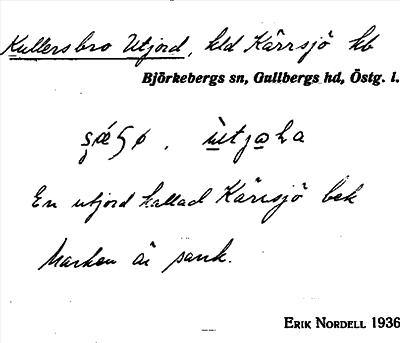 Kullersbro Utjord, kld Kärrsjö kb
Björkebergs sn, Gullbergs hd, Östg. l.
En utjord kallad Kärrsjö bek
Marken är sank.
ERIK NORDELL 1936